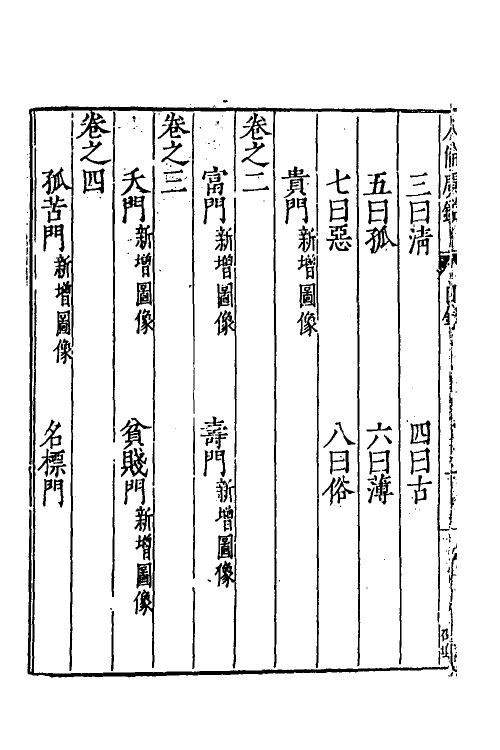 三曰清 四曰古
五曰孤 六曰薄
七曰惡 八曰俗
貴門新增圖像
卷之二
富門新增圖像 壽門新增圖像
卷之三
夭門新增圖像 貧賤門新增圖像
卷之四
孤苦門新增圖像 名標門